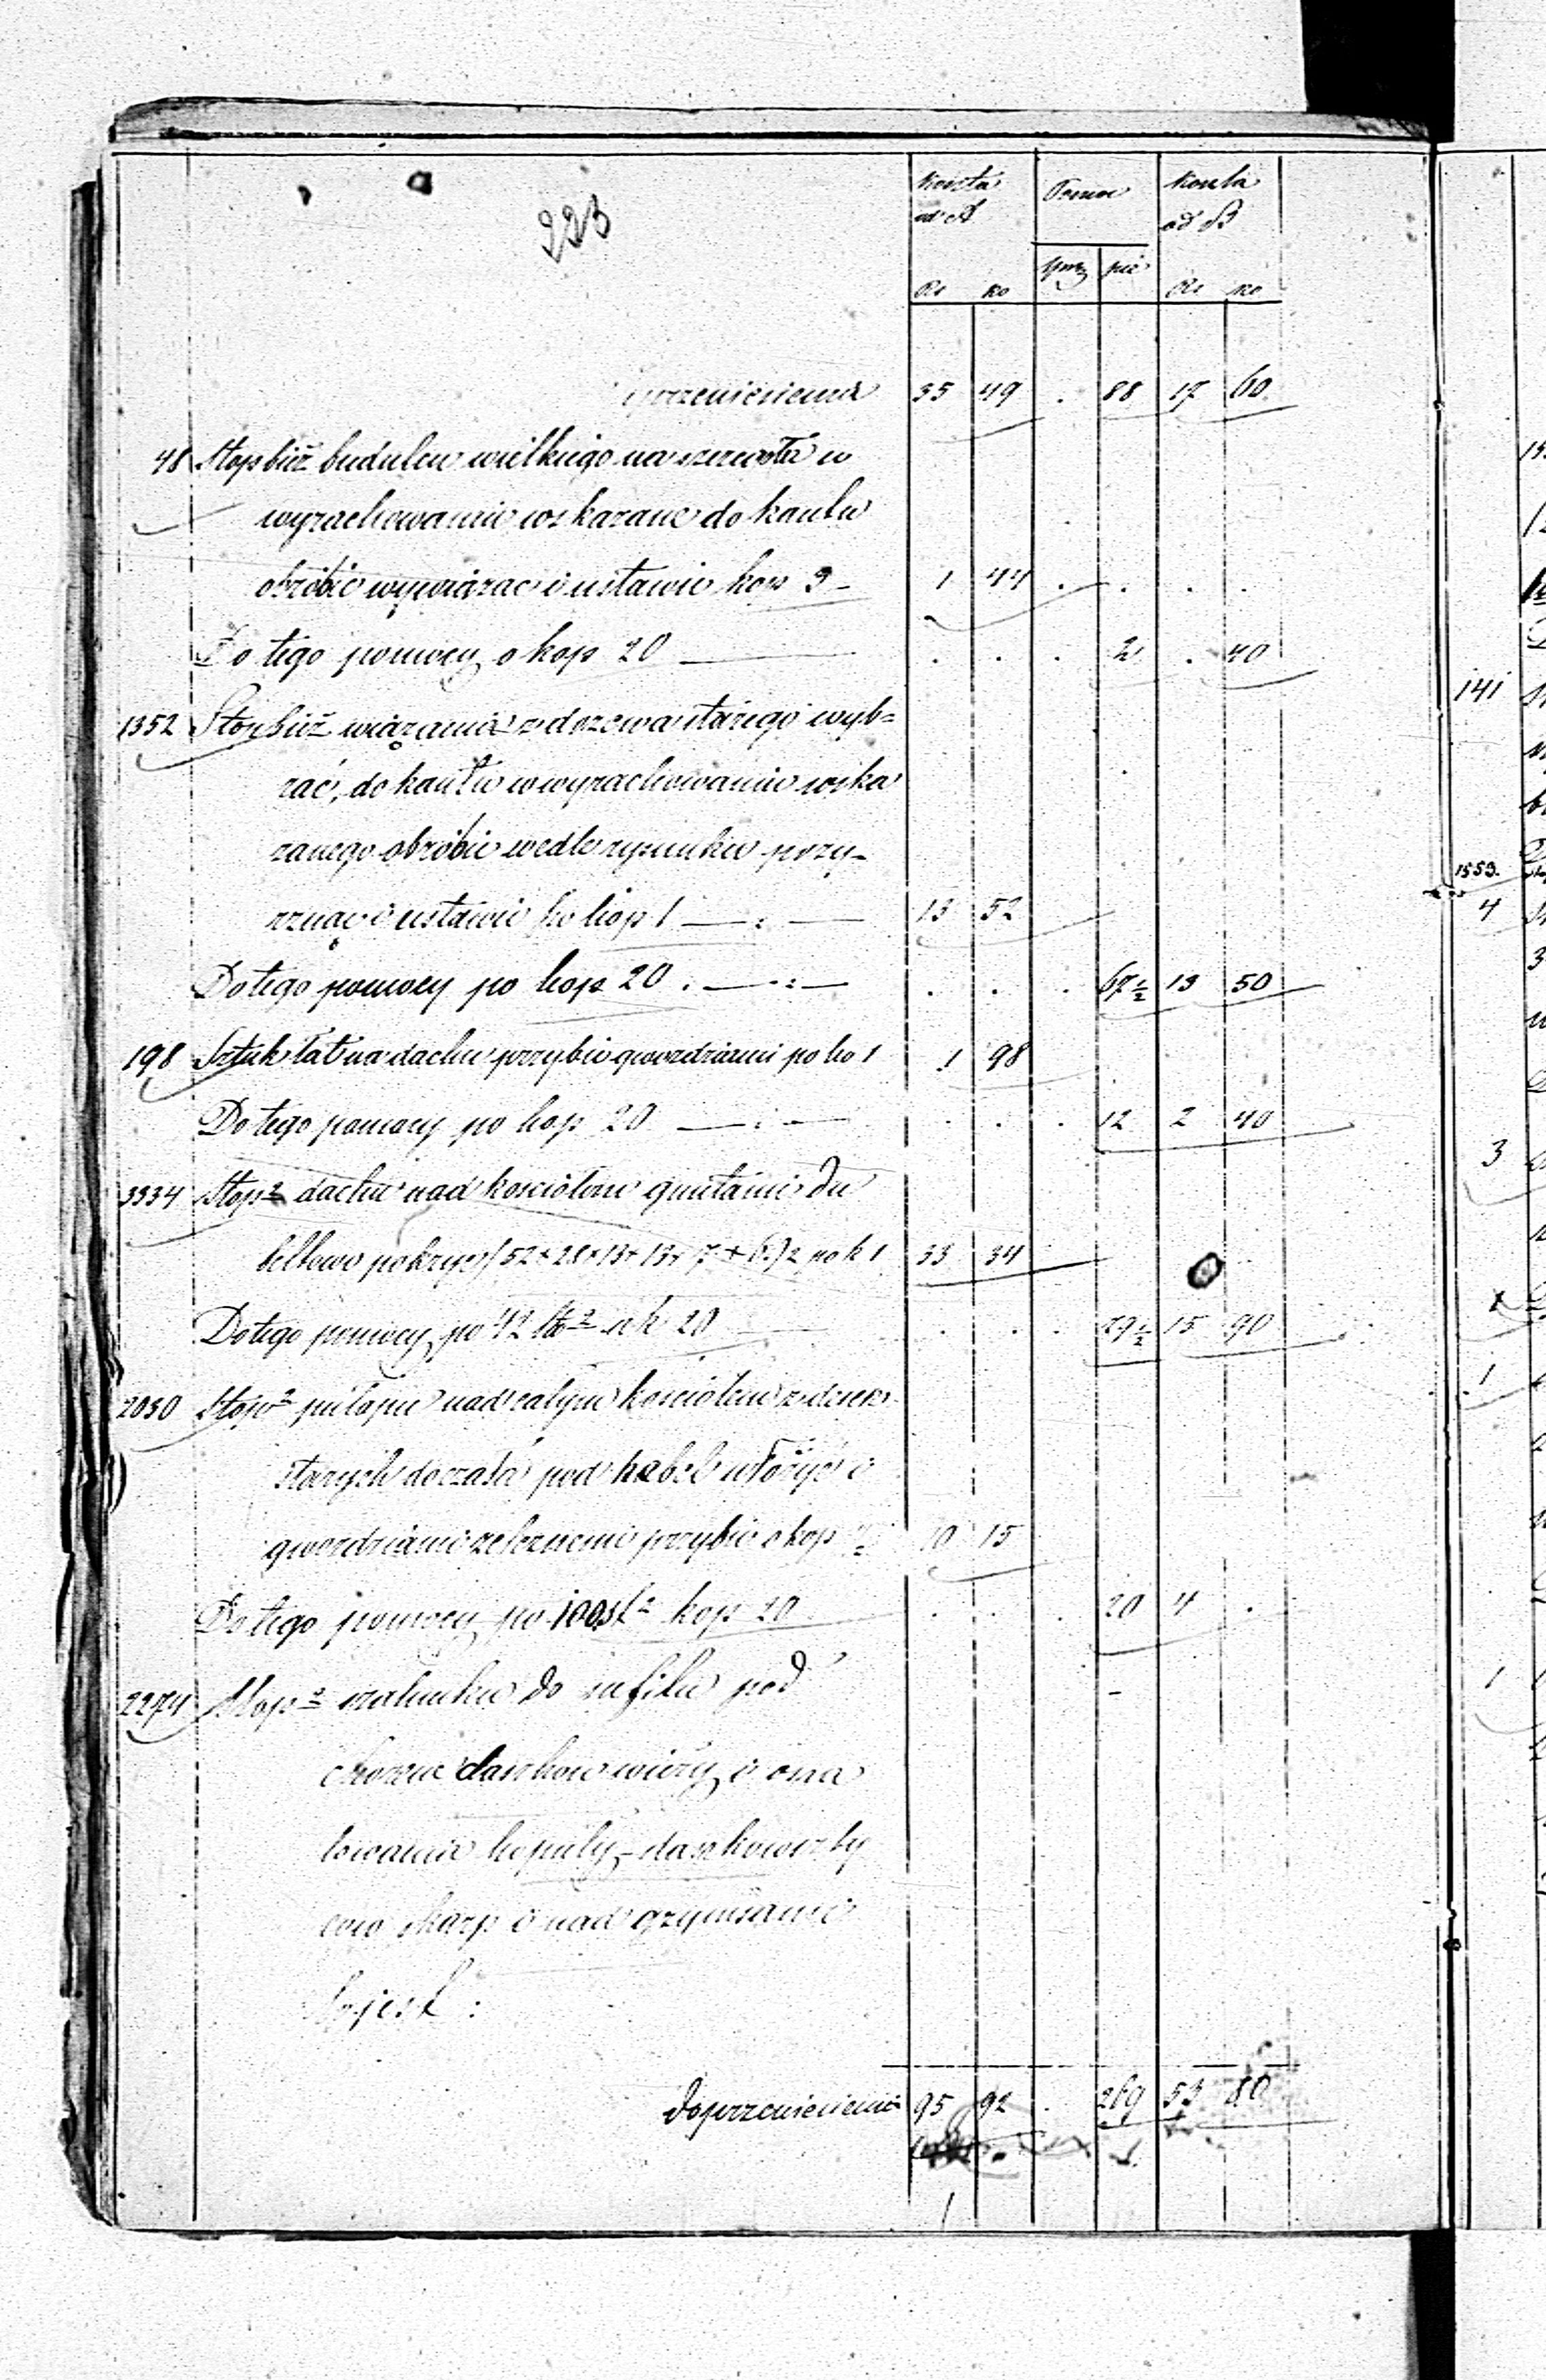 223
Koszta od A
Pomoc
Koszta od B
Rs ko sprz pie Rs ko
przeniesienia 35 49 . 88 17 60
48 Stop bież budulcu wielkiego na szerzota w
wyrachowaniu wskazane do kantu
obróbić wywiązac i ustawić kop 3 – 1 44 . . . .
Do tego pomocy o kop 20 . . . 2 . 40
1352 Stop bież wiązania z drzewa starego wyb=
rać, do kantu w wyrachowaniu wska
zanego obróbić wedle rysunku przy-
rznąc i ustawić ko kop 1 13 52
Do tego pomocy po kop 20 . . . 67½ 13 50
198 Sztuk łat na dachu przybić gwozdziami po ko 1 1 98
Do tego pomocy po kop 20 . . . 12 2 40
3334 Stop² dachu nad kosciołem gontami du
beltowo pokryc (52+28+13+13+7+6.)2 po k 1 33 34
Do tego pomocy po 42 st² a k 20 . . . 79½ 15 90
2030 Stop² pułapu nad całym kosciołem z desek
starych do czasa pod hebel ułożyć i
gwozdziami zelaznemi przybić o kop ½ 10 15
Do tego pomocy po 100 st² kop 20 . . . 20 4 .
2274 Stop² szalunku do sufitu pod
daszkow wieży, i
kopuły, daszkow
skarp i nad gzymsami
to jest :
do przeniesienia 95 92 . 269 53 80
141
1553.
4
3
1
1